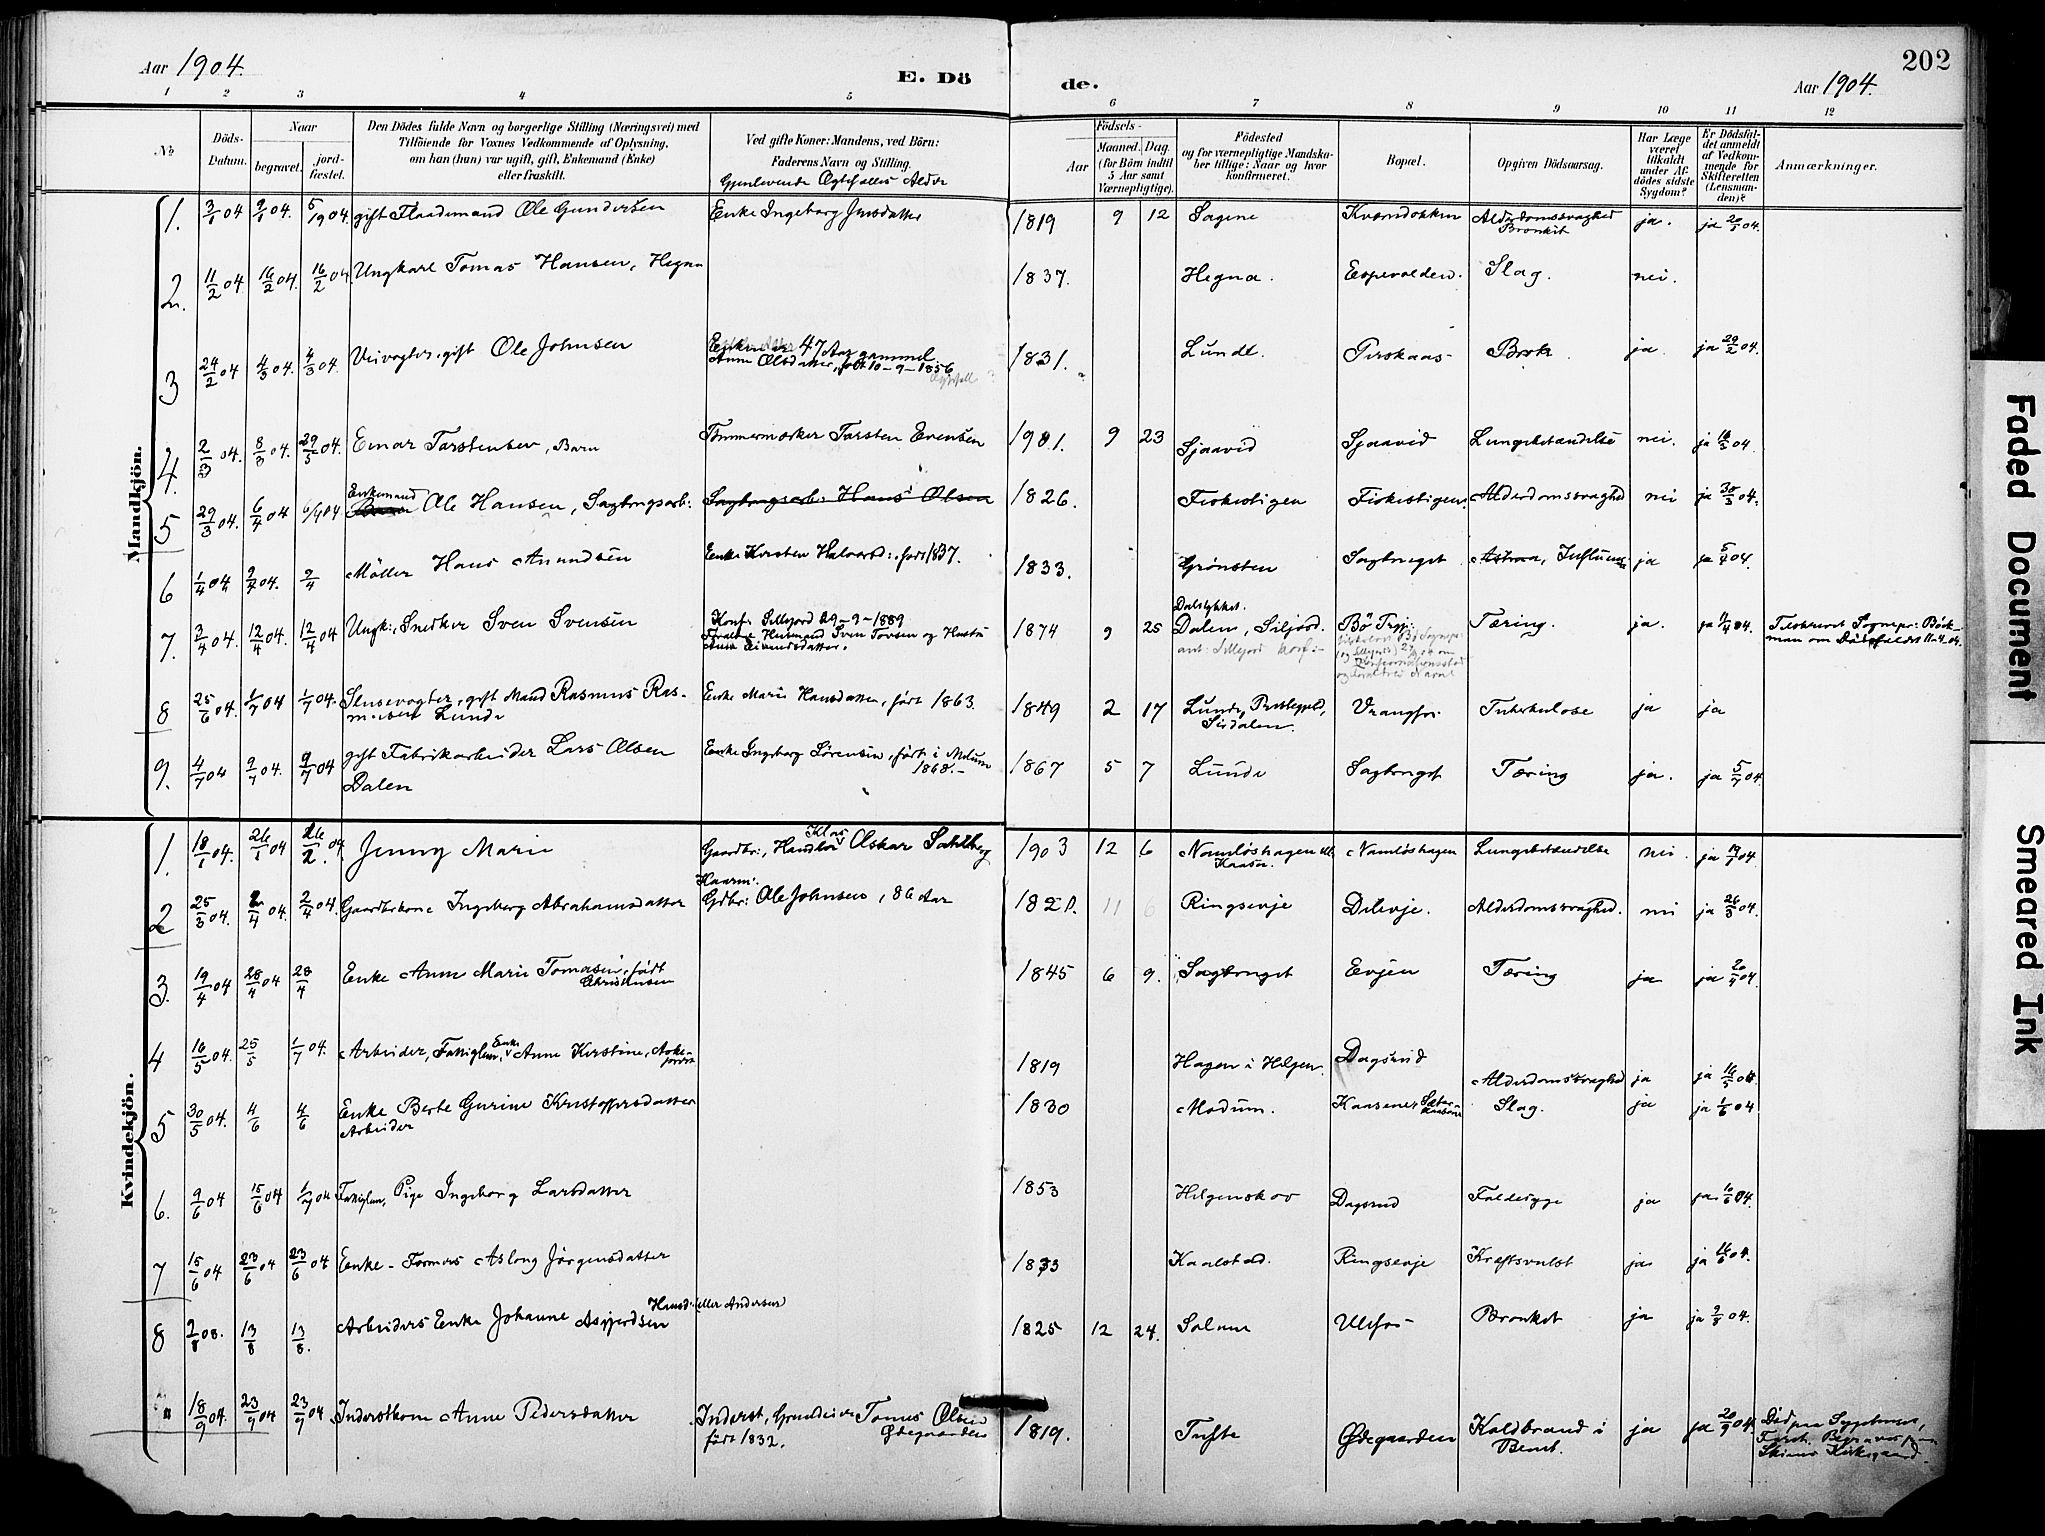 Aar 1904.
E. Dö
de.
Aar 1904.
202
1 2 3 4 5 6 7 8 9 10 11 12
№
Döds-
Datum.
Naar
begravet.
jord-
fæstet.
Den Dödes fulde Navn og borgerlige Stilling (Næringsvei) med
Tilföiende for Voxnes Vedkommende af Oplysning,
om han (hun) var ugift, gift, Enkemand (Enke)
eller fraskilt.
Ved gifte Koner: Mandens, ved Börn:
Faderens Navn og Stilling.
Gjenlevende Ægtefælles Alder
Aar
Födsels-
Maaned. Dag.
(for Börn indtil
5 Aar samt
Værnepligtige).
Födested
og for værnepligtige Mandska-
ber tillige: Naar og hvor
konfirmeret.
Bopæl.
Opgiven Dödsaarsag.
Har Læge
været
tilkaldt
under Af-
dödes sidste
Sygdom?
Er Dödsfal-
det anmeldt
af Vedkom-
mende for
Skifteretten
(Lensman-
den)?
Anmærkninger.
Mandkjön.
1. 3/1 04 9/1 04. 5/1904. gift Flaademand Ole Gundersen Enke Ingeborg Jensdatter 1819 9 12 Sagene Kværndokken Alderdomssvaghed ja. ja 20/1 04.
Bronkit
2. 11/2 04. 16/2 04. 16/2 04 Ungkarl Tomas Hansen, Hegna 1837. Hegna. Espevolden. Slag. nei.
3 24/2 04 4/3 04. 4/3 04. Veivogter, gift Ole Johnsen 47 Aar gammel 1831. Lunde. Perskaas Brok. ja ja 29/2 04.
Anne Olsdatter, født 10-9-1856
4. 2/3 04. 8/3 04. 29/5 04. Einar Tarstensen, Barn Tømmermærker Tarsten Evensen 1901. 9 23 Sjaavid Sjaavid Lungebetændelse nei. ja 16/3 04.
Enkemand
5 29/3 04. 6/4 04 6/4 04 Barn Ole Hansen, Sagbrugsarb: Sagbrugsarb: Hans Olsen 1826. Fiskestigen Fiskestigen Alderdomssvaghed nei ja 30/3 04.
6 1/4 04 9/4 04. 9/4 Möller Hans Amundsen Enke Kirsten Halvorsd: født 1837. 1833. Grønsten Sagbruget Astma, Influenza ja ja 5/4 04.
7. 3/4 04. 12/4 04. 12/4 04 Ungk:, Snedker Sven Svensen Konf: Sillejord 29-9-1889 1874 9 25 Dalen, Siljord. Bö Tæring. ja. ja 9/4 04. Tilskrevet Sognepr: Böck-
man om Dödsfaldet 11-4-04.
8 25/6 04. 1/7 04 1/7 04. Slusevogter, gift Mand Rasmus Ras- Enke Marie Hansdatter, født 1863. 1849 2 17 Lunde, Præstegjeld, Vrangfos Tuberkulose ja ja
mussen Lunde
9. 4/7 04 9/7 04. 9/7 04 gift Fabrikarbeider Lars Olsen Enke Ingeborg Sörensen, født i Melum 1867 5 7 Lunde Sagbruget Tæring ja. ja 5/7 04
Dalen 1868.-
Kvindekjön.
1. 18/1 04. 26/1 04 26/2 04 Jenny Marie Gaardbr:, Handlov Klas Oskar Sahlberg 1903 12 6 Namløshagen Namløshagen Lungebetændelse nei. ja 19/1 04.
2 25/3 04. 2/4 04. 2/4 04. Gaardbrkone Ingeborg Abrahamsdatter Gdbr: Ole Johnsen, 86 Aar 1820. 11 6 Ringsevje Dilevje. Alderdomssvaghed. nei ja 26/3 04.
3. 19/4 04 28/4 04 28/4 Enke Anne Marie Tomasen, født 1845 6 9. Sagbruget Evjen Tæring ja ja 20/4 04.
Christensen
4 16/5 04. 25/5 1/7 04. Arbeider, Fattiglem, Enke Anne Kirstine 1819 Hagen i Helgen. Dagsrud Alderdomssvaghed ja ja 16/5 04
5 30/5 04. 4/6 4/6 Enke Berte Gurine Kristoffersdatter 1830 Modum. Kaasene Slag. ja ja 1/6 04
Arbeider
6. 9/6 04 15/6 04 1/7 04 Fattiglem, Pige Ingeborg Larsdatter 1853 Helgenskov Dagsrud Faldesyge ja ja 10/6 04.
7 15/6 04 23/6 04 23/6 04 Enke - Formers Aslong Jörgensdatter 1833 Kaalstad. Ringsevje Kræftsvulst ja ja 16/6 04.
Hansd: eller Andersen
8 7/8 08. 13/8 13/8. Arbeiders Enke Johanne Asgjerdsen 1825 12 24. Solum Ulefos Bronkit ja ja 9/8 04.
18/9 04. 23/9 04 23/9 04. Inderstkone Anne Pedersdatter Inderst, Grundeier Tomas Olsen 1819. Tufte Ødegaarden Koldbrand i ja ja 20/9 04 Död paa Sygehuset,
født 1832. Ødegaarden Benet. Begraves paa
Skiens Kirkegaard.
Faded Document
Smeared Ink